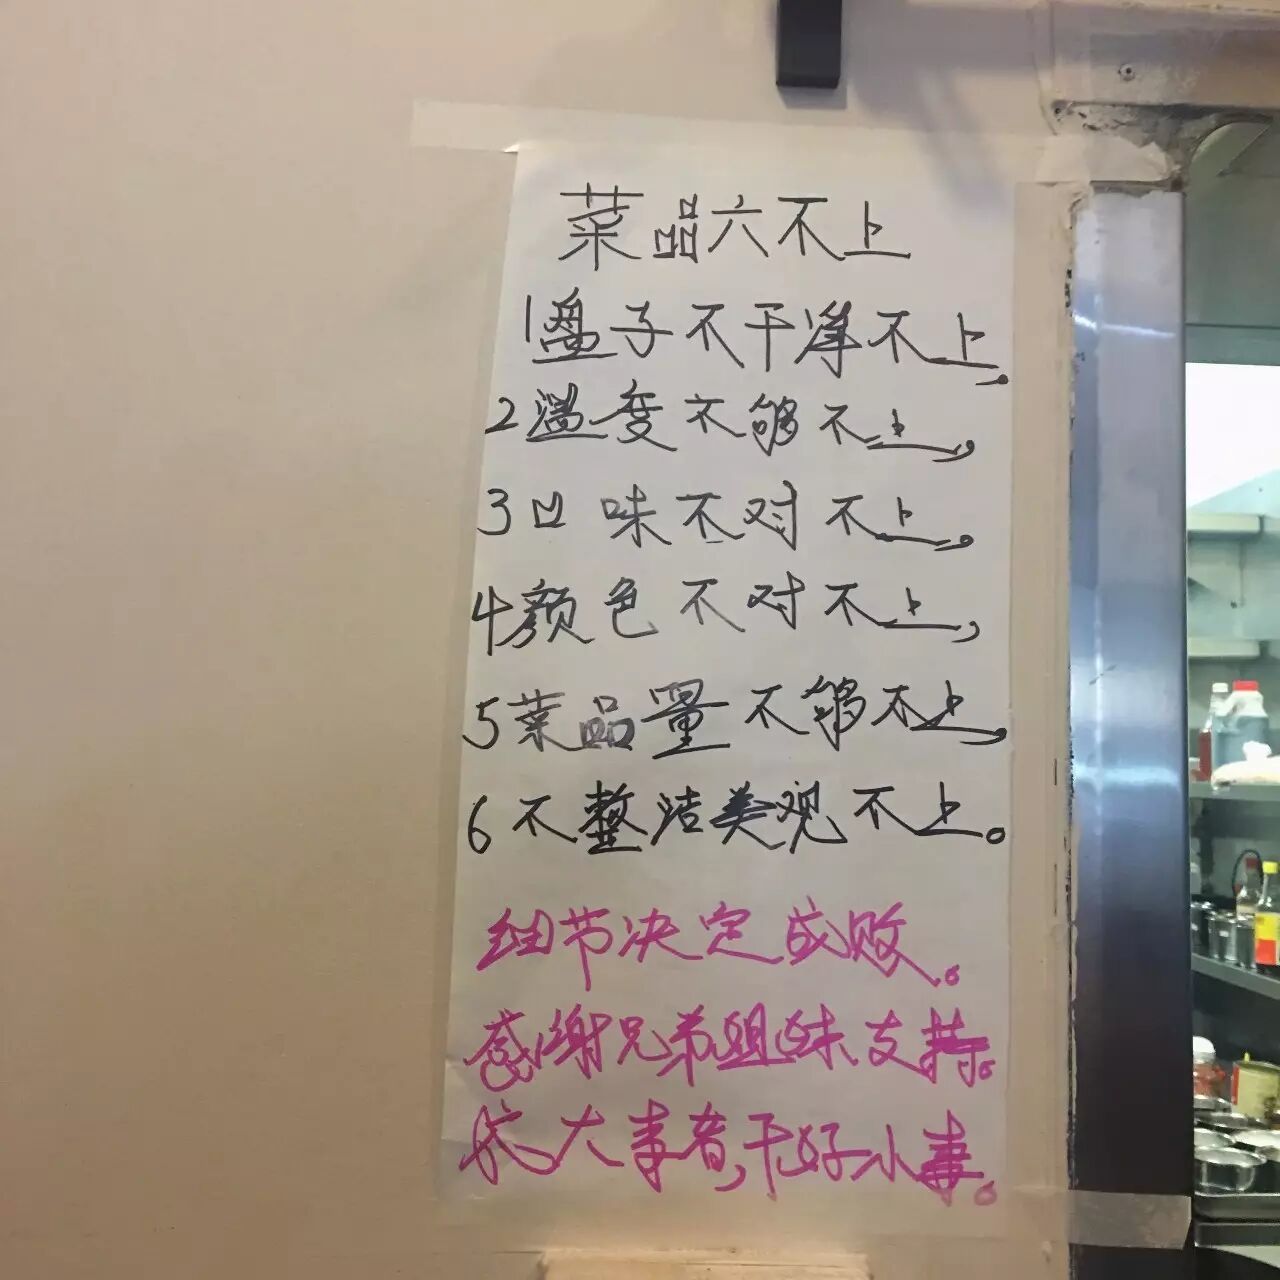 菜品六不上
1盘子不干净不上,
2温度不够不上,
3口味不对不上,
4颜色不对不上,
5菜品量不够不上,
6不整洁美观不上。
细节决定成败。
感谢兄弟姐妹支持。
成大事者,干好小事。